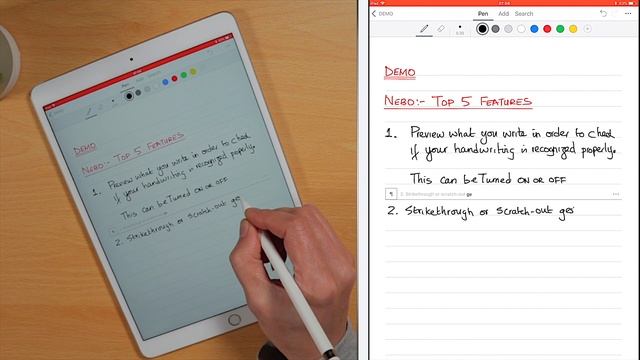 DEMO
Pen Add Search
0.35
DEMO
NEBO:- TOP 5 FEATURES
1. Preview what you write in order to check
if your handwriting is recognized properly.
This can be Turned ON OR OFF
2. Strikethrough or scratch-out ge
2. Strikethrough or scratch-out ges
DEMO
NEBO:- TOP 5 FEATURES
1. Preview what you write in order to check
if your handwriting is recognized properly.
This can be Turned ON OR OFF
2. Strikethrough or scratch-out ge